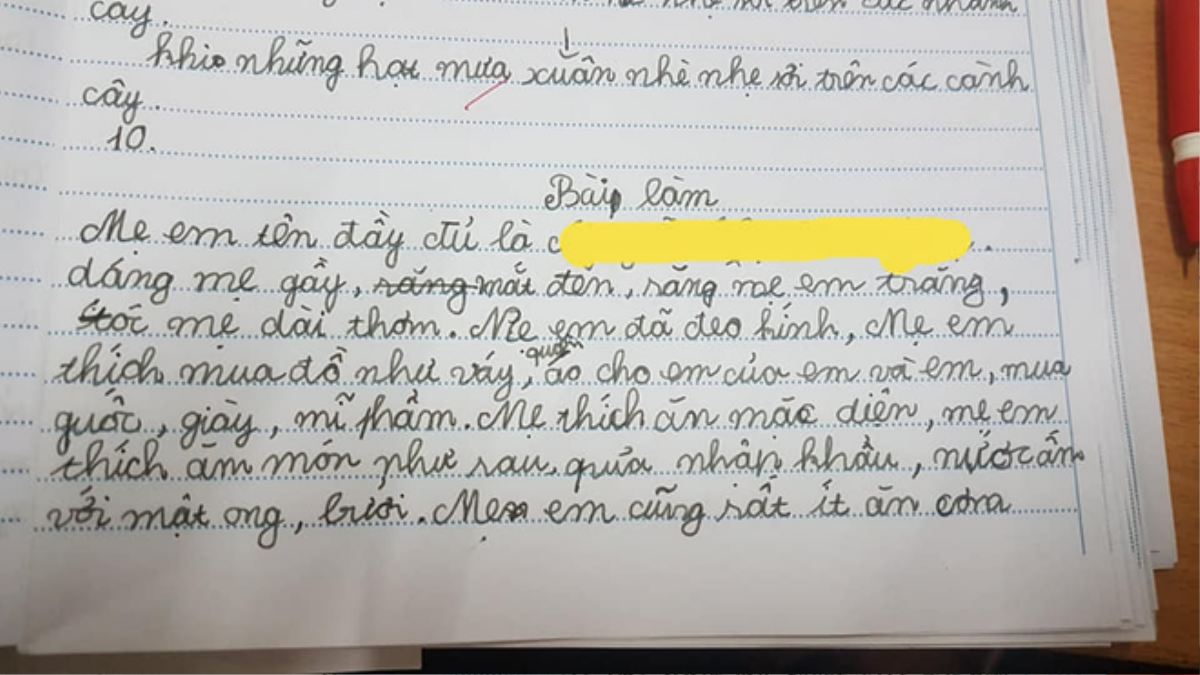 cây.
khi những hạt mưa xuân nhè nhẹ rơi trên các cành
cây.
10.
Bài làm
Mẹ em tên đầy đủ là
dáng mẹ gầy, răng mắt đen, răng mẹ em trắng,
tóc mẹ dài thơm. Mẹ em đã đeo kính, Mẹ em
thích mua đồ như váy, quần áo cho em của em và em, mua
guốc, giày, mĩ phẩm. Mẹ thích ăn mặc diện, mẹ em
thích ăm món như sau, quửa nhập khẩu, nước ấm
với mật ong, bưởi. Mẹ em cũng rất ít ăn cơm